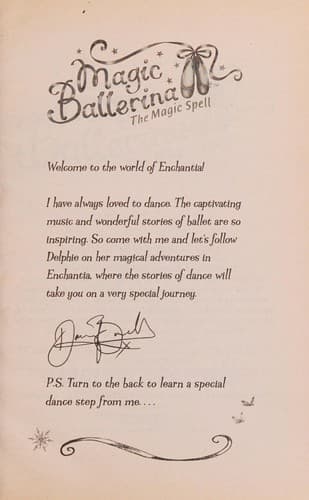 Magic
Ballerina
The Magic Spell
Welcome to the world of Enchantia!
I have always loved to dance. The captivating
music and wonderful stories of ballet are so
inspiring. So come with me and let's follow
Delphie on her magical adventures in
Enchantia, where the stories of dance will
take you on a very special journey.
P.S. Turn to the back to learn a special
dance step from me. . . .